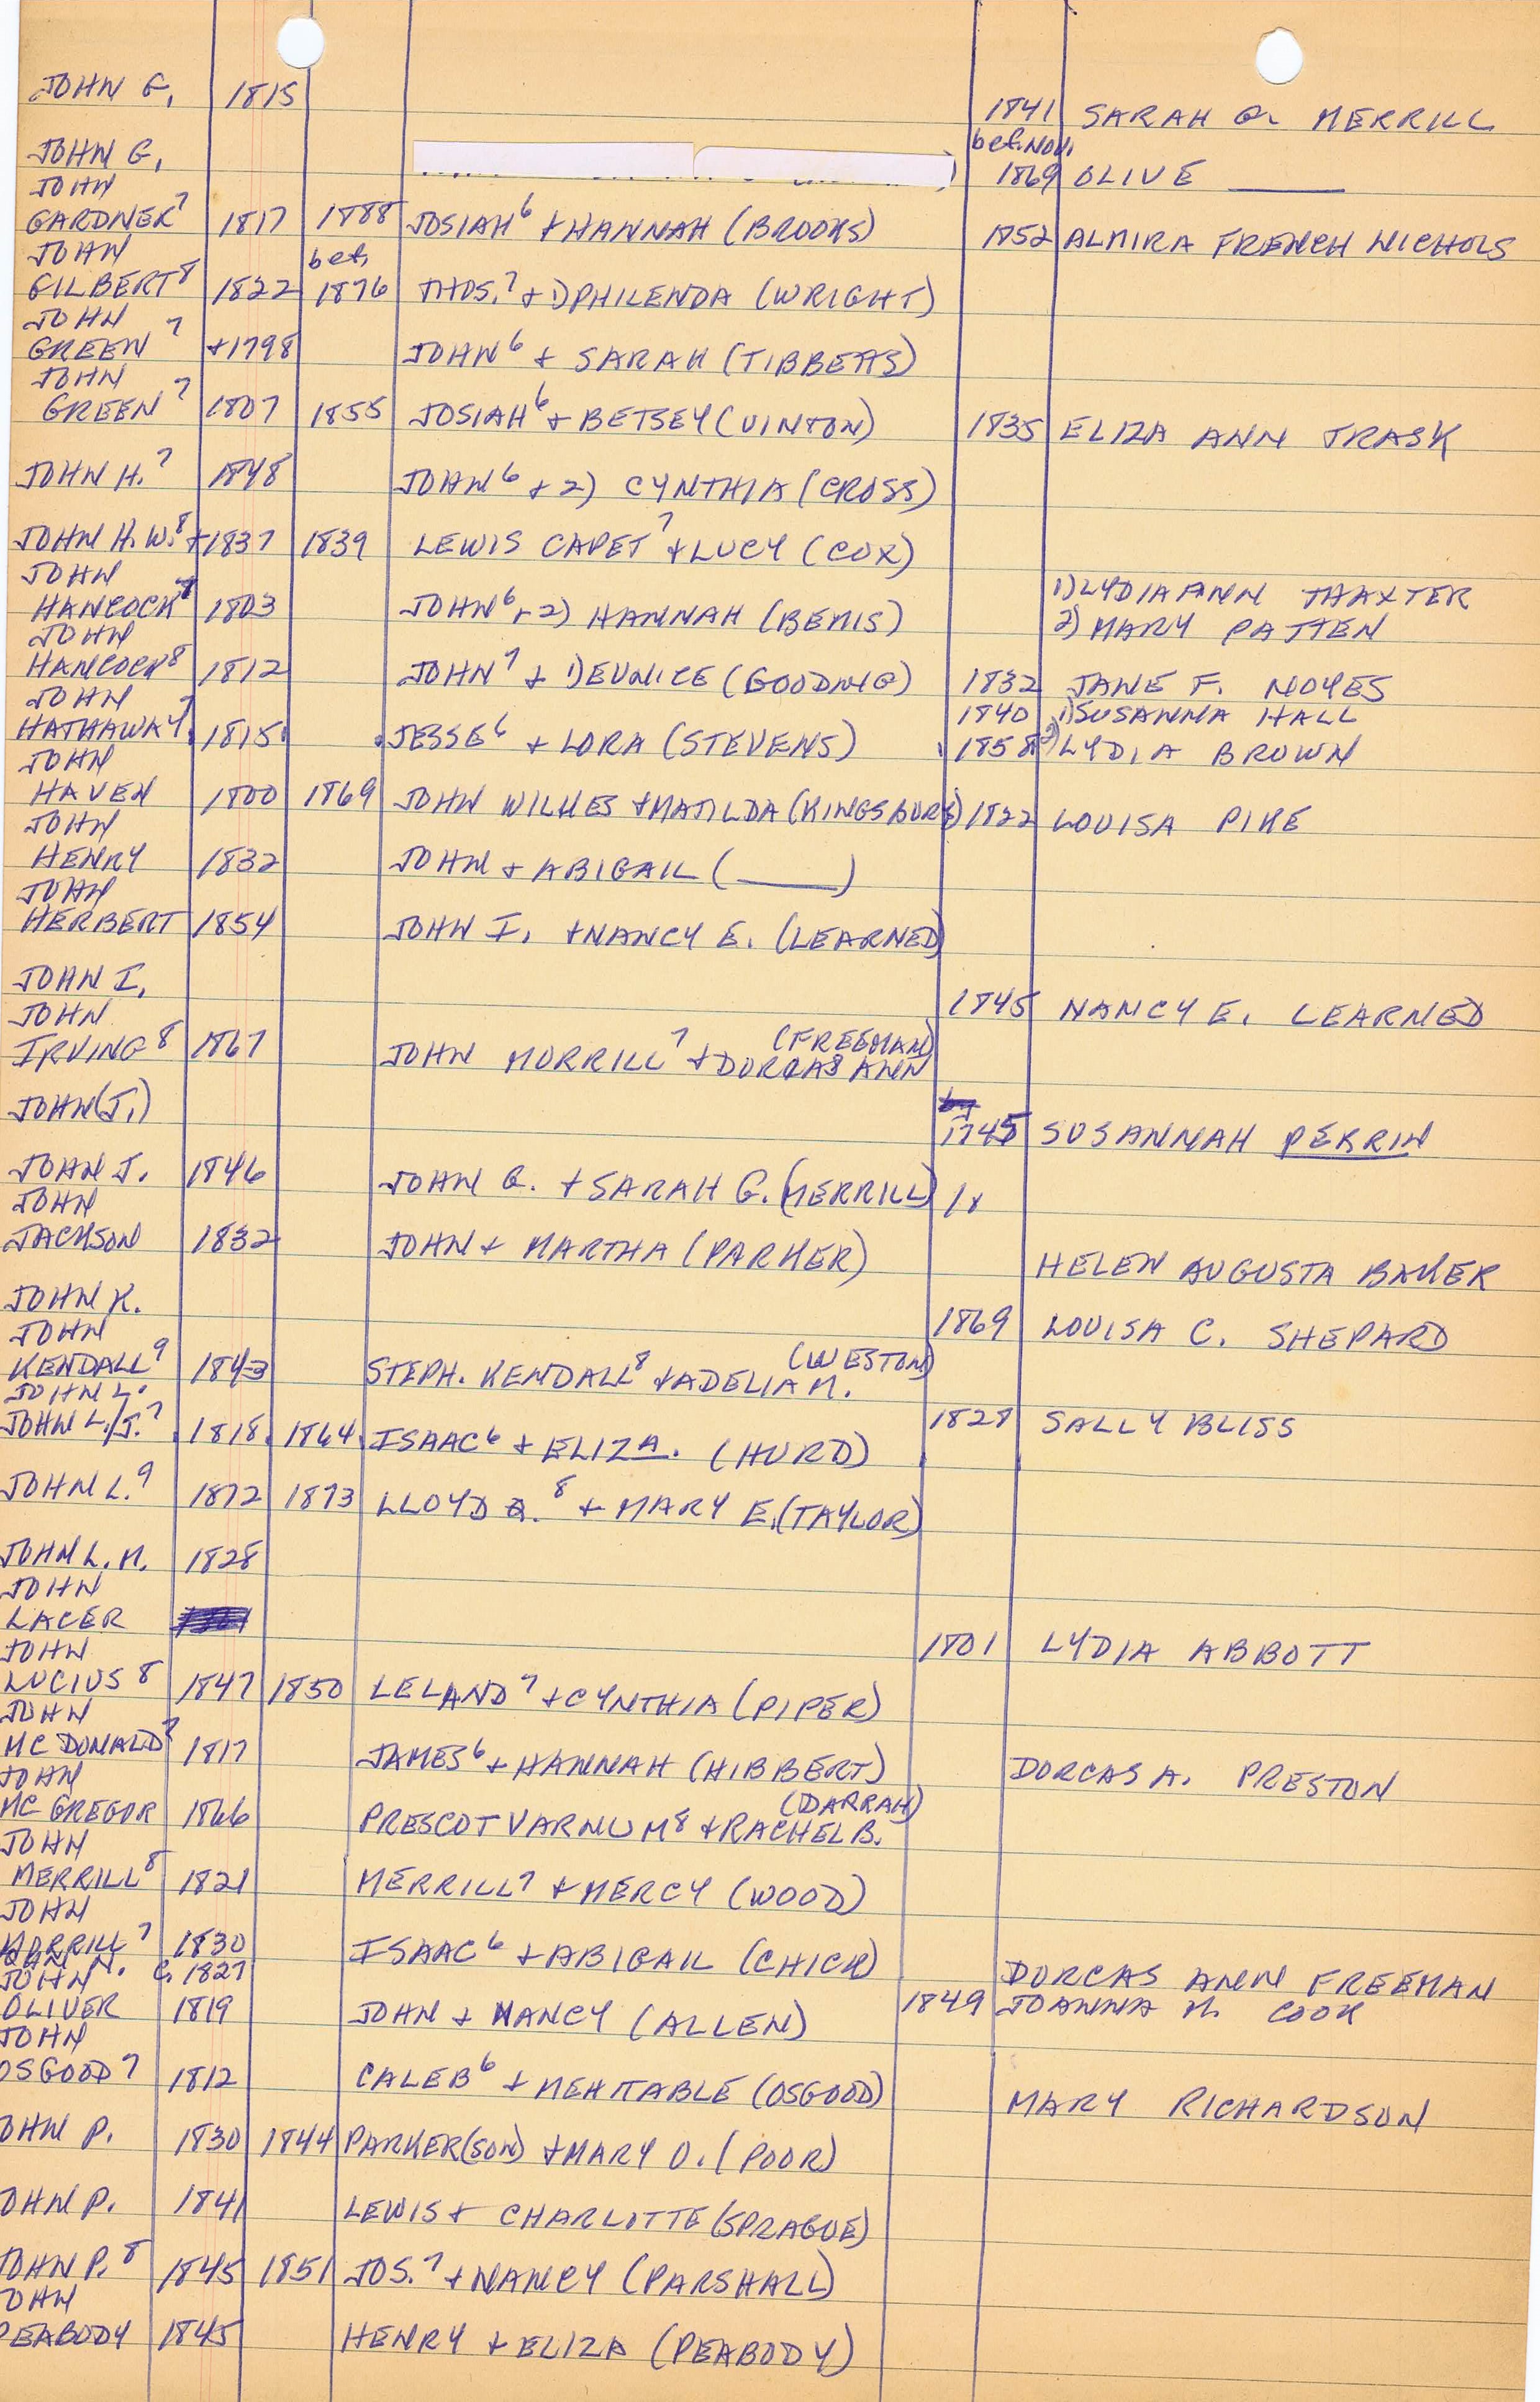 JOHN G. 1815 1841 SARAH G. MERRILL
bef. Nov.
JOHN G. 1869 OLIVE ______
JOHN
GARDNER⁷ 1817 1888 JOSIAH⁶ + HANNAH (BROOKS) 1852 ALMIRA FRENCH NICHOLS
JOHN bef.
GILBERT⁸ 1822 1876 THOS.⁷ + 1) PHILENDA (WRIGHT)
JOHN
GREEN⁷ +1798 JOHN⁶ + SARAH (TIBBETTS)
JOHN
GREEN⁷ 1807 1855 JOSIAH⁶ + BETSEY (VINTON) 1835 ELIZA ANN TRASK
JOHN H.⁷ 1848 JOHN⁶ + 2) CYNTHIA (CROSS)
JOHN H. W.⁸ +1837 1839 LEWIS CAPET⁷ + LUCY (COX)
JOHN 1) LYDIA ANN THAXTER
HANCOCK 1803 JOHN⁶ + 2) HANNAH (BEMIS) 2) MARY PATTEN
JOHN
HANCOCK⁸ 1812 JOHN⁷ + 1) EUNICE (GOODNIG) 1832 JANE F. NOYES
JOHN 1840 1) SUSANNA HALL
HATHAWAY⁷ 1815 JESSE⁶ + LORA (STEVENS) 1858 2) LYDIA BROWN
JOHN
HAVEN 1800 1869 JOHN WILKES + MATILDA (KINGSBURY) 1822 LOUISA PIKE
JOHN
HENRY 1832 JOHN + ABIGAIL (______)
JOHN
HERBERT 1854 JOHN I. + NANCY E. (LEARNED)
JOHN I. 1845 NANCY E. LEARNED
JOHN (FREEMAN)
IRVING⁸ 1867 JOHN MORRILL⁷ + DORCAS ANN
JOHN (J.) 1745 SUSANNAH PERRIN
JOHN J. 1846 JOHN G. + SARAH G. (MERRILL) 18
JOHN
JACKSON 1832 JOHN + MARTHA (PARKER) HELEN AUGUSTA BAKER
JOHN K. 1869 LOUISA C. SHEPARD
JOHN (WESTON)
KENDALL⁹ 1843 STEPH. KENDALL⁸ + ADELIA M.
JOHN L. 1828 SALLY BLISS
JOHN L./J.⁷ 1818 1864 ISAAC⁶ + ELIZA. (HURD)
JOHN L.⁹ 1872 1873 LLOYD Q.⁸ + MARY E. (TAYLOR)
JOHN L. M. 1828
JOHN
LACER 1801 LYDIA ABBOTT
JOHN
LUCIUS⁸ 1847 1850 LELAND⁷ + CYNTHIA (PIPER)
JOHN
MC DONALD⁷ 1817 JAMES⁶ + HANNAH (HIBBERT) DORCAS A. PRESTON
JOHN (DARRAH)
MC GREGOR 1866 PRESCOT VARNUM⁸ + RACHEL B.
JOHN
MERRILL⁸ 1821 MERRILL⁷ + MERCY (WOOD)
JOHN
MORRILL⁷ 1830 ISAAC⁶ + ABIGAIL (CHICK) DORCAS ANN FREEMAN
JOHN N. C. 1827 1849 JOANNA M. COOK
JOHN
OLIVER 1819 JOHN + NANCY (ALLEN)
JOHN
OSGOOD⁷ 1812 CALEB⁶ + MEHITABLE (OSGOOD) MARY RICHARDSON
OHN P. 1830 1844 PARKER(SON) + MARY O. (POOR)
OHN P. 1841 LEWIS + CHARLOTTE (SPRAGUE)
JOHN P.⁸ 1845 1851 JOS.⁷ + NANCY (PARSHALL)
OHN
PEABODY 1845 HENRY + ELIZA (PEABODY)